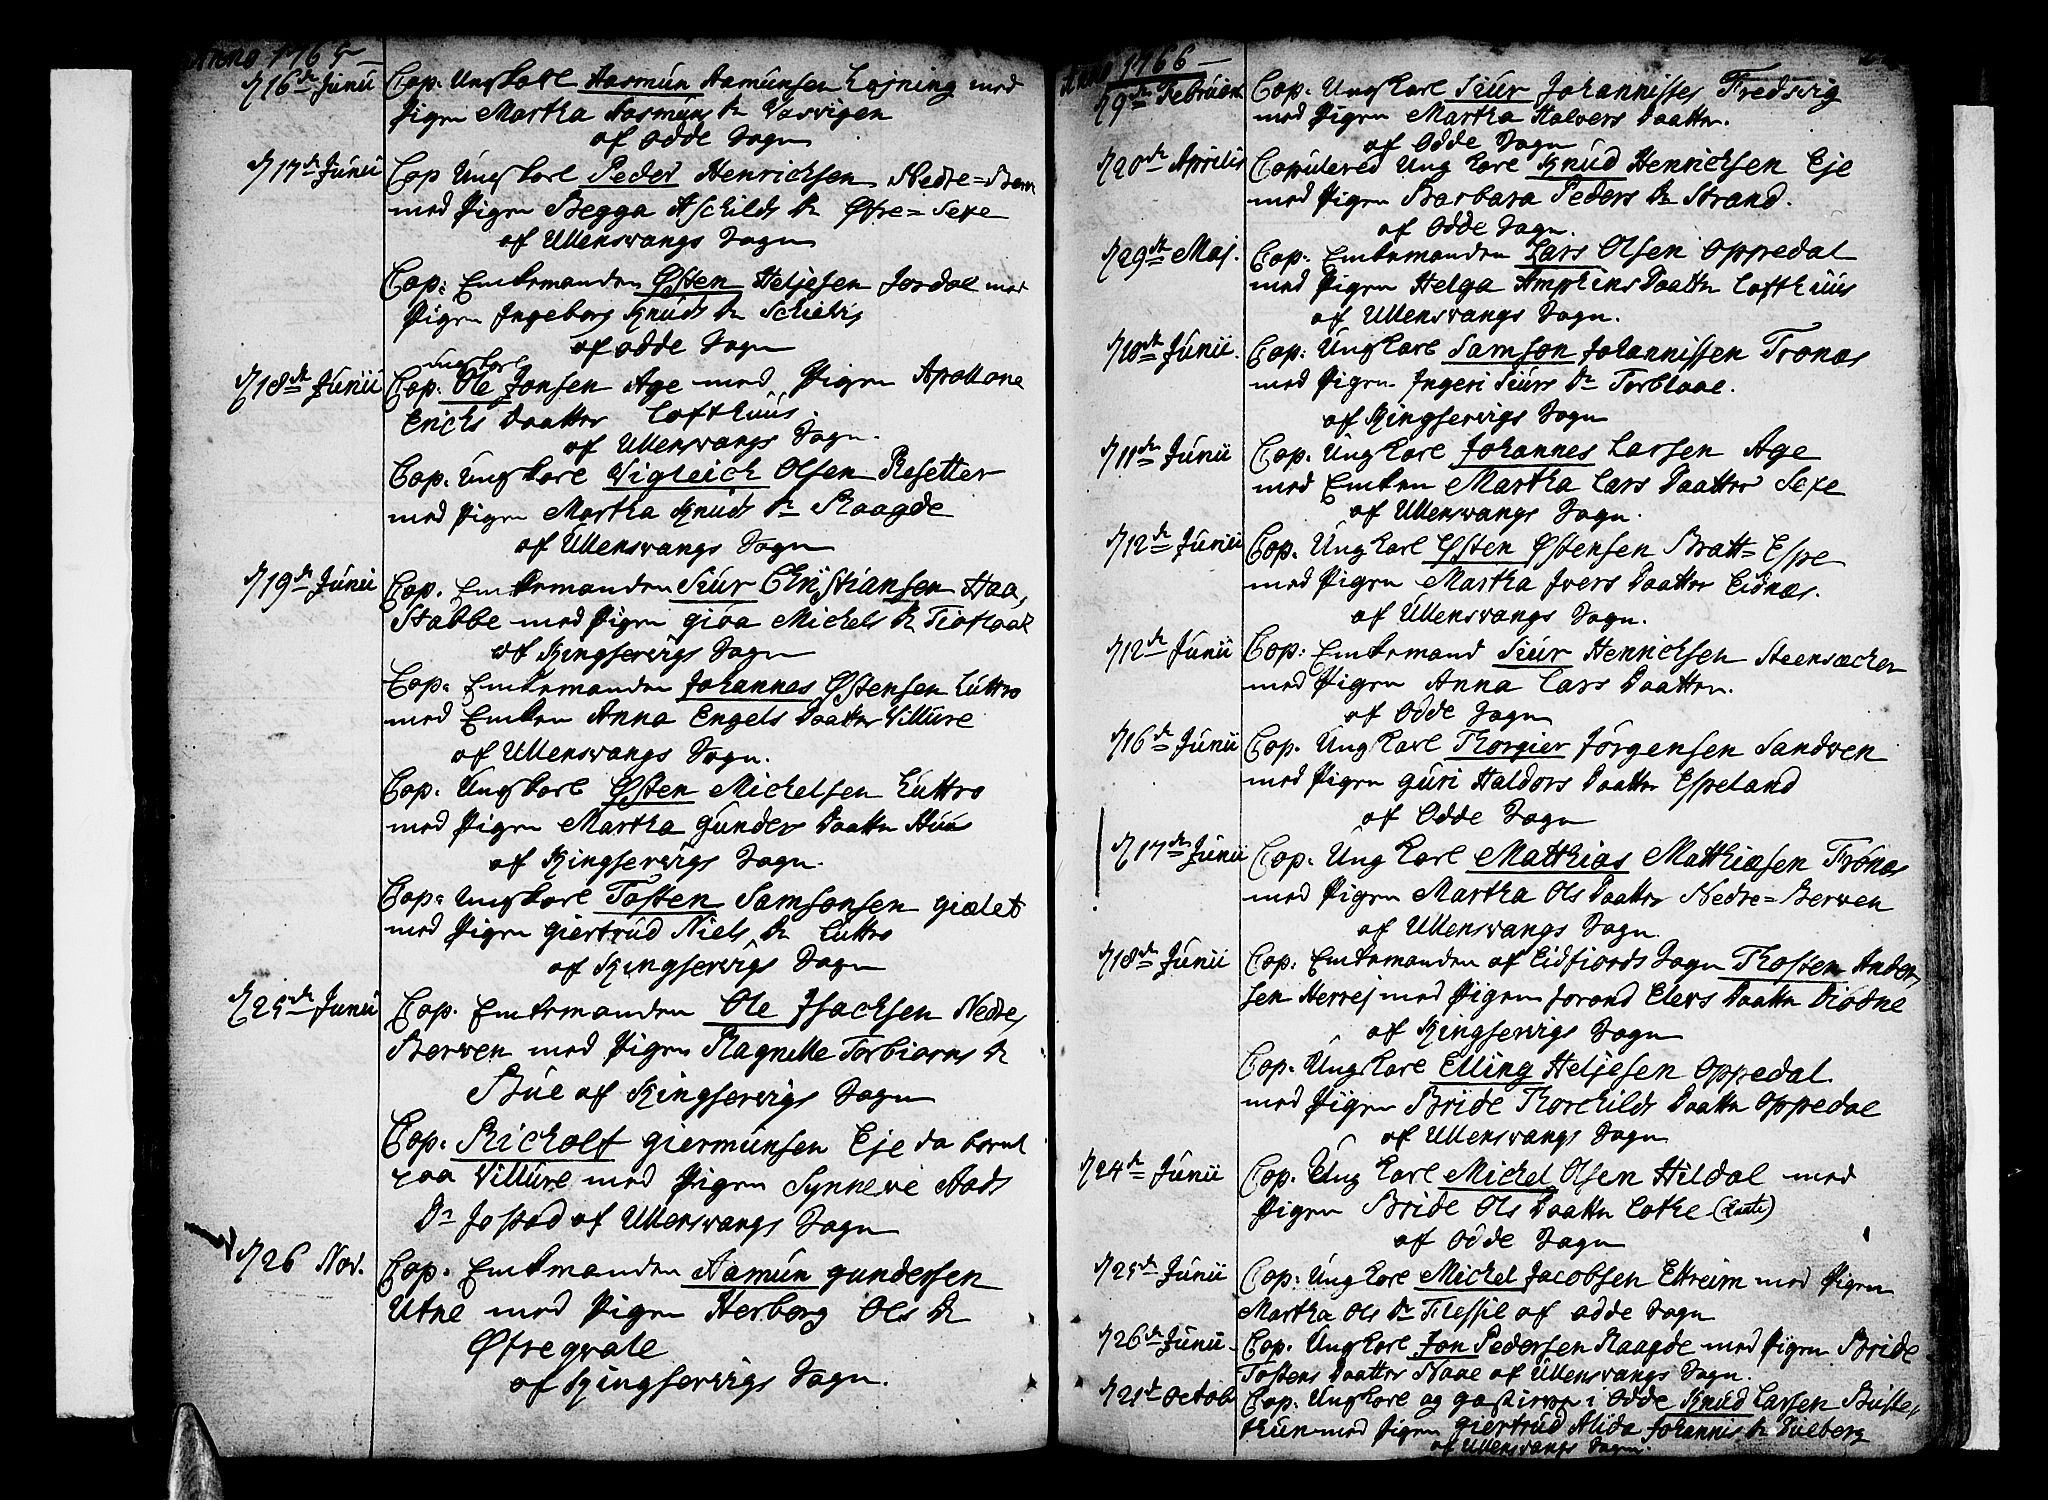 Anno 1765
d 16de Junii Cop. Ungkarl Aasmun Aamunsen Løjning med
Pigen Martha Aasmuns Dr Vasvigen
af Odde Sogn
d 17de Junii Cop Ungkarl Peder Henrichsen Nedre=Berv
med Pigen Begga Aschilds Dr Øfre=Sexe
af Ullensvangs Sogn
Cop: Enkemanden Østen Heljesen Jordal med
Pigen Ingeborg Knuds Dr Schielvig
af Odde Sogn
ungkarl
d 18de Junii Cop. Ole Jonsen Age med Pigen Apollone
Erichs Daatter Lofthuus.
af Ullensvangs Sogn.
Cop. Ungkarl Vigleich Olsen Resetter
med Pigen Martha Knuds Dr Raagde
af Ullensvangs Sogn
d 19de Junii Cop. Enkemanden Siur Christiansen Haa,
Stabbe med Pigen Giøa Michels Dr Tioflaat
af Kingservigs Sogn
Cop. Enkemanden Johannes Østensen Luttro
med Enken Anna Engels Daatter Villure
af Ullensvangs Sogn.
Cop. Ungkarl Østen Michelsen Luttro
med Pigen Martha Gunders Daatter Huus
af Kingservigs Sogn.
Cop. Ungkarl Tosten Samsonsen Gialet
med Pigen Giertrud Niels Dr Luttro
af Kingservigs Sogn
d 25de Junii Cop. Enkemanden Ole Isachsen Nedre,
Berven med Pigen Ragnilde Torbiørns Dr
Bue af Kingservigs Sogn
Cop. Richolf Giermunsen Eje da boende
paa Villure med Pigen Synneve Aads
Dr Jøstad af Ullensvangs Sogn
d 26 Nov. Cop. Enkemanden Aamun Gundersen
Utne med Pigen Herborg Ols Dr
Øfreqvale
af Kingservigs Sogn.
Anno 1766
d 9de Februarii Cop. Ungkarl Siur Johannisses Fredsvig
med Pigen Martha Halvors Daatter.
af Odde Sogn
d 20de Aprilis Copulered Ungkarl Knud Henrichsen Eje
med Pigen Barbara Peders Dr Strand.
af Odde Sogn.
d 29de Maj. Cop. Enkemanden Lars Olsen Oppedal
med Pigen Helga Amphins Daatter Lofthuus
af Ullensvangs Sogn.
d 10de Junii. Cop. Ungkarl Samson Johannissen Tronæs
med Pigen Ingeri Siurs Dr Torblaae.
af Kingservigs Sogn
d 11de Junii Cop. Ungkarl Johannes Larsen Age
med Enken Martha Lars Daatter Sexe
af Ullensvangs Sogn.
d 12de Junii Cop. Ungkarl Østen Østensen Bratt=Espe
med Pigen Martha Ivers Daatter Eidnæs.
af Ullensvangs Sogn.
d 12de Junii Cop: Enkemand Siur Henrichsen Steensæcher
med Pigen Anna Lars Daatter.
af Odde Sogn
d 16de Junii Cop. Ungkarl Thorgier Jørgensen Sandven
med Pigen Guri Haldors Daatter Espeland
af Odde Sogn
d 17de Junii Cop. Ungkarl Matthias Matthiæsen Tronæs
med Pigen Martha Ols Daatter Nedre=Berven
af Ullensvangs Sogn.
d 18de Junii Cop. Enkemanden af Eidfiords Sogn Thosten Ander,
sen Herrej med Pigen Jorand Elevs Daatter Diødne
af Kingservigs Sogn
Cop. Ungkarl Elling Heljesen Oppedal
med Pigen Bride Thorchilds Daatter Oppedal
af Ullensvangs Sogn
d 24de Junii Cop. Ungkarl Michel Olsen Hildal med
Pigen Bride Ols Daatter Lothe
af Odde Sogn
d 25de Junii Cop. Ungkarl Michel Jacobsen Eitreim med Pigen
Martha Ols Dr Flessil af Odde Sogn
d 26de Junii Cop. Ungkarl Jon Pedersen Raagde med Pigen Bride
Tostens Daatter Naae af Ullensvangs Sogn.
d 21de Octob Cop. Ungkarl og Gastiver i Odde Knud Larsen Buste,
thun med Pigen Giertrud Alida Johannis Dr Dueberg
af Ullensvangs Sogn.